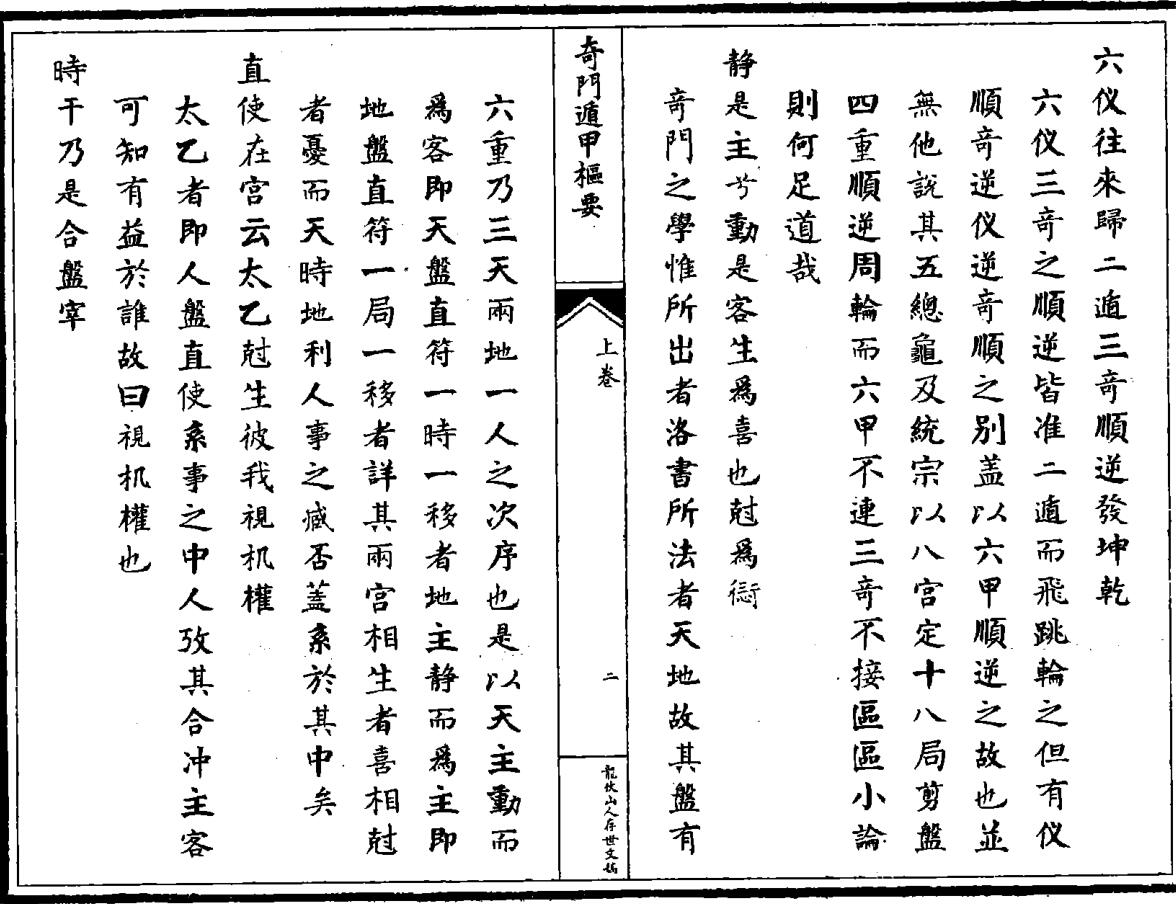 六仪往來歸二遁三奇順逆發坤乾
六仪三奇之順逆皆准二遁而飛跳輪之但有仪
順奇逆仪逆奇順之别盖以六甲順逆之故也並
無他說其五總龜及統宗以八宫定十八局剪盤
四重順逆周輪而六甲不連三奇不接區區小論
則何足道哉
静是主兮動是客生爲喜也尅爲愆
奇門之學惟所出者洛書所法者天地故其盤有
奇門遁甲樞要
上卷
二
龍伏山人存世文稿
六重乃三天兩地一人之次序也是以天主動而
爲客即天盤直符一時一移者地主静而爲主即
地盤直符一局一移者詳其兩宫相生者喜相尅
者憂而天時地利人事之臧否蓋系於其中矣
直使在宫云太乙尅生彼我視机權
太乙者即人盤直使系事之中人攷其合冲主客
可知有益於誰故曰視机權也
時干乃是合盤宰